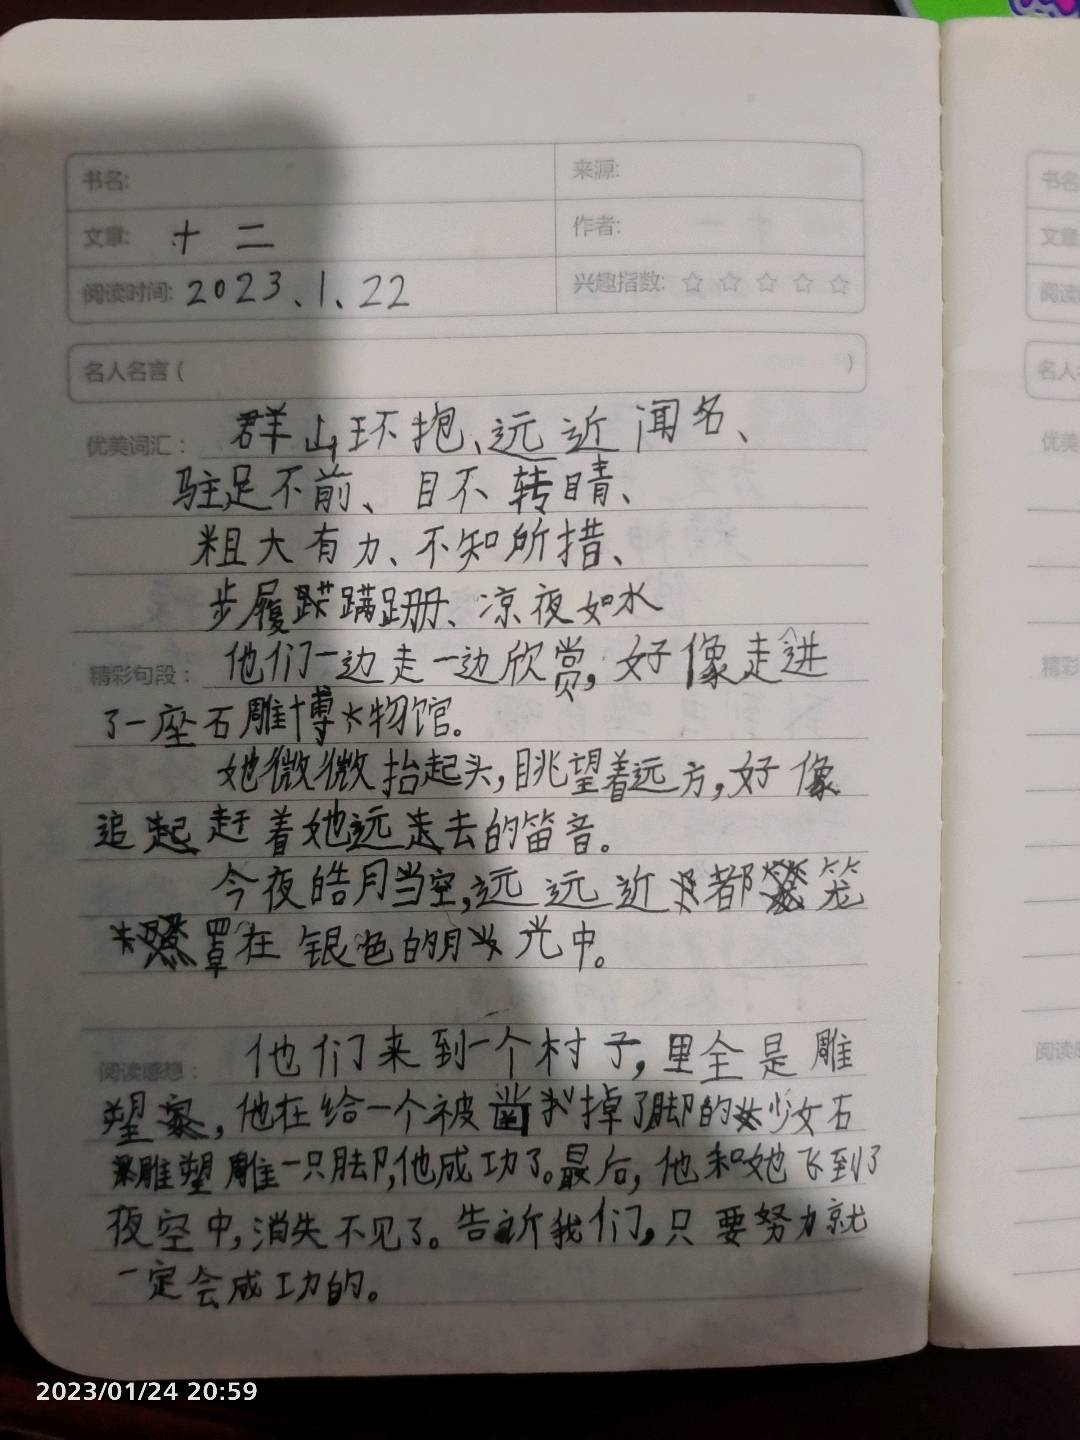 书名:
来源:
文章: 十二
作者:
阅读时间: 2023、1、22
兴趣指数: ☆ ☆ ☆ ☆ ☆
名人名言 ( )
优美词汇: 群山环抱、远近闻名、
驻足不前、目不转睛、
粗大有力、不知所措、
步履蹒跚、凉夜如水
精彩句段: 他们一边走一边欣赏,好像走进
了一座石雕博物馆。
她微微抬起头,眺望着远方,好像
追赶着她远走去的笛音。
今夜皓月当空,远远近近都笼
罩在银色的月光中。
阅读感想: 他们来到一个村子,里全是雕
塑家,他在给一个被凿掉了脚的少女石
雕塑雕一只脚,他成功了。最后,他和她飞到了
夜空中,消失不见了。告诉我们,只要努力就
一定会成功的。
书名
文章
阅读
名人
优美
精彩
阅读感
2023/01/24 20:59